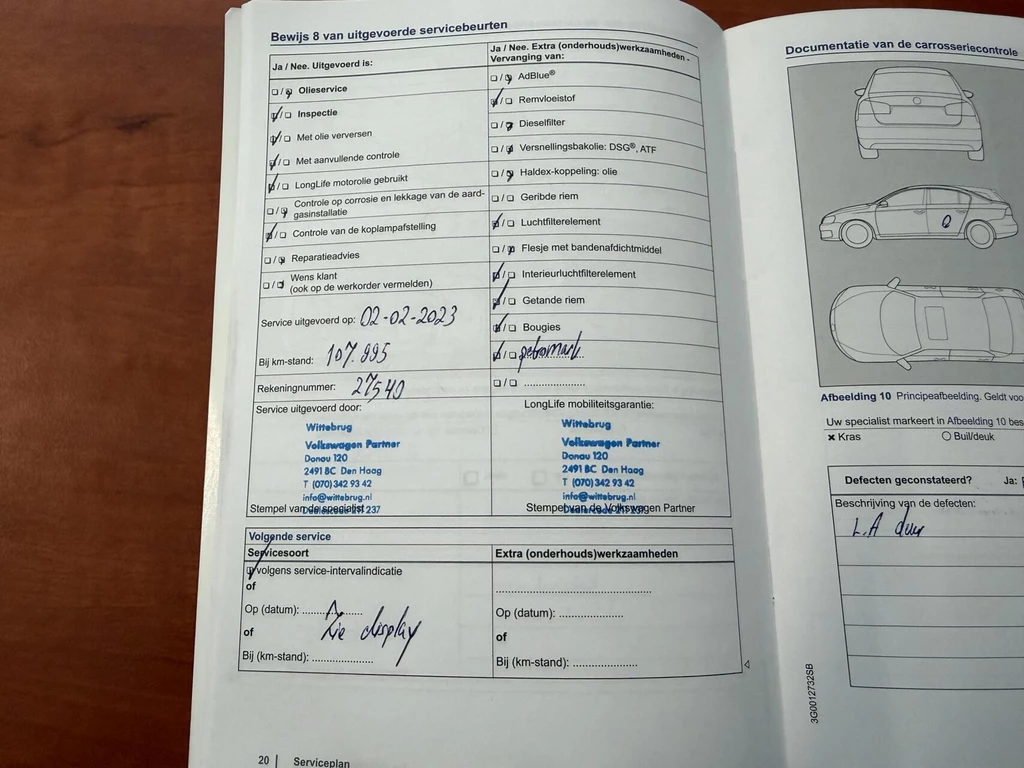 Bewijs 8 van uitgevoerde servicebeurten
Ja / Nee. Uitgevoerd is:
Olieservice
Inspectie
Met olie verversen
Met aanvullende controle
LongLife motorolie gebruikt
Controle op corrosie en lekkage van de aard-
gasinstallatie
Controle van de koplampafstelling
Reparatieadvies
Wens klant
(ook op de werkorder vermelden)
Service uitgevoerd op: 02-02-2023
Bij km-stand: 107.995
Rekeningnummer: 27540
Service uitgevoerd door:
Wittebrug
Volkswagen Partner
Donau 120
2491 BC Den Haag
T (070) 342 93 42
info@wittebrug.nl
Stempel van de specialist
Ja / Nee. Extra (onderhouds)werkzaamheden -
Vervanging van:
AdBlue®
Remvloeistof
Dieselfilter
Versnellingsbakolie: DSG®, ATF
Haldex-koppeling: olie
Geribde riem
Luchtfilterelement
Flesje met bandenafdichtmiddel
Interieurluchtfilterelement
Getande riem
Bougies
LongLife mobiliteitsgarantie:
Wittebrug
Volkswagen Partner
Donau 120
2491 BC Den Haag
T (070) 342 93 42
info@wittebrug.nl
Stempel van de Volkswagen Partner
Volgende service
Servicesoort
volgens service-intervalindicatie
of
Op (datum):
of
Zie display
Bij (km-stand):
Extra (onderhouds)werkzaamheden
Op (datum):
of
Bij (km-stand):
20 | Serviceplan
Documentatie van de carrosseriecontrole
Afbeelding 10 Principeafbeelding. Geldt voo
Uw specialist markeert in Afbeelding 10 bes
x Kras
O Buil/deuk
Defecten geconstateerd? Ja:
Beschrijving van de defecten:
L.A deur
3G0012732SB